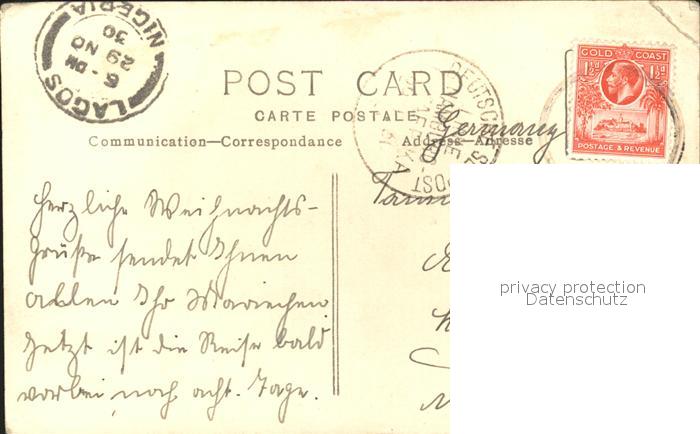 LAGOS
6 - PM
29 NO
30
NIGERIA
POST CARD
CARTE POSTALE
Communication—Correspondance
Address—Adresse
DEUTSCHE SEEPOST
GOLD COAST
1½d 1½d
POSTAGE & REVENUE
Germany
Herzliche Weihnachts-
grüße sendet Ihnen
allen Ihr Mariechen
Jetzt ist die Reise bald
vorbei, noch acht Tage.
privacy protection
Datenschutz